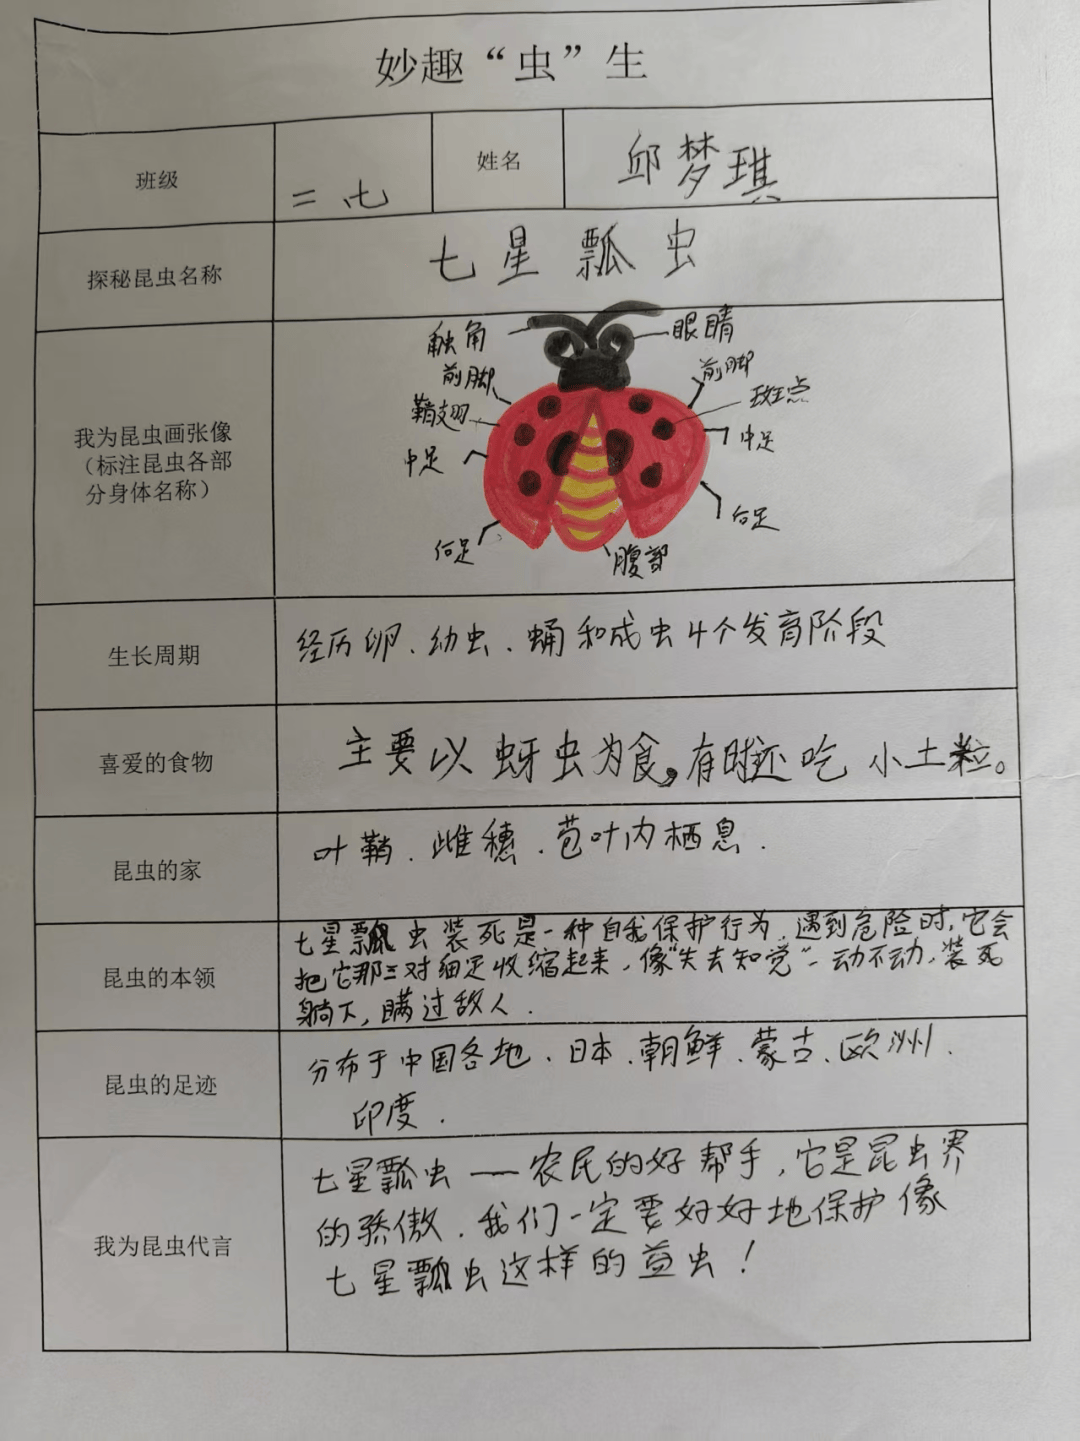 妙趣“虫”生
班级
二、七
姓名
邱梦琪
探秘昆虫名称
七星瓢虫
我为昆虫画张像
（标注昆虫各部
分身体名称）
触角
眼睛
前脚
前脚
鞘翅
斑点
中足
中足
后足
后足
腹部
生长周期
经历卵、幼虫、蛹和成虫4个发育阶段
喜爱的食物
主要以蚜虫为食，有时还吃小土粒。
昆虫的家
叶鞘、雌穗、苞叶内栖息.
昆虫的本领
七星瓢虫装死是一种自我保护行为，遇到危险时，它会
把它那三对细足收缩起来，像“失去知觉”一动不动，装死
躺下，瞒过敌人.
昆虫的足迹
分布于中国各地、日本、朝鲜、蒙古、欧洲、
印度.
我为昆虫代言
七星瓢虫——农民的好帮手，它是昆虫界
的骄傲.我们一定要好好地保护像
七星瓢虫这样的益虫！